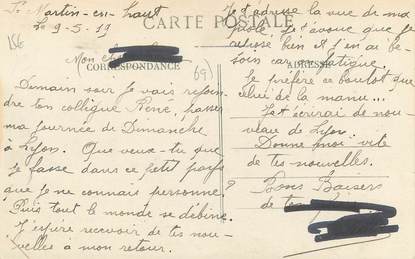 St Martin-en-haut
Le 9-5.19
CARTE POSTALE
156
Mon
CORRESPONDANCE
(69)
ADRESSE
Demain soir je vais rejoin-
dre ton collègue René, passer
ma journée de Dimanche
à Lyon. Que veux-tu que
je fasse dans ce petit pays
que je ne connais personne ?
Puis tout le monde se débine.
J'espère recevoir de tes nou-
velles à mon retour.
Je t'adresse la vue de ma
piole. Je t'avoue que je
repose bien et j'en ai be-
soin car fatigue.
Je préfère ce boulot que
celui de la manu...
Je t'écrirai de nou-
veau de Lyon.
Donne moi vite
de tes nouvelles.
Bons Baisers
de ton